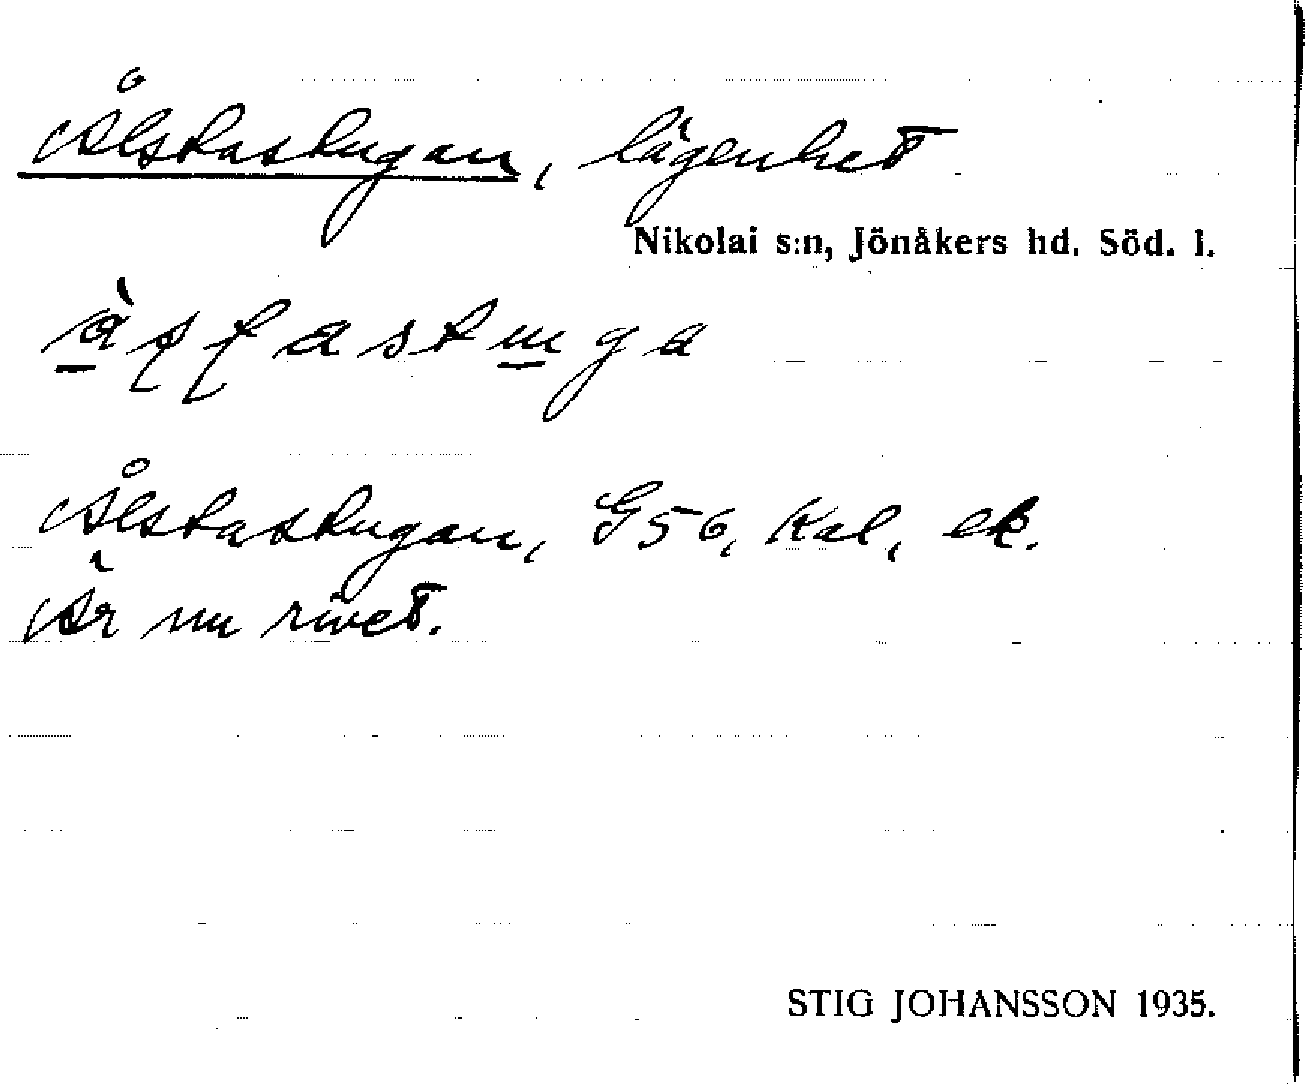 Ålstastugan, lägenhet
Nikolai s:n, Jönåkers hd. Söd. l.
Ålstastugan, G56, Kal, ek.
Är nu rivet.
STIG JOHANSSON 1935.